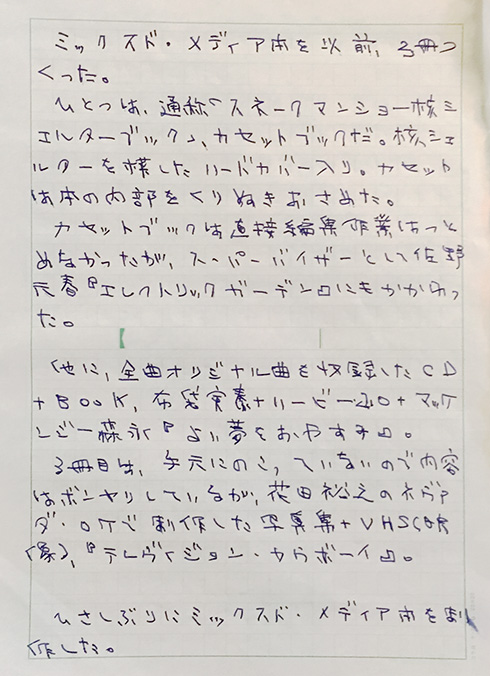 ミックスド・メディア本を以前、3冊つ
くった。
ひとつは、通称「スネークマンショー核シ
ェルターブック」、カセットブックだ。核シェ
ルターを模したハードカバー入り。カセット
は本の内部をくりぬきおさめた。
カセットブックは直接編集作業はつと
めなかったが、スーパーバイザーとして佐野
元春『エレクトリックガーデン』にもかかわっ
た。
他に、全曲オリジナル曲を収録したCD
+BOOK、布袋寅泰+リービー+マッケ
ンジー森永『よい夢をおやすみ』。
3冊目は、手元にのこっていないので内容
はボンヤリしているが、花田裕之のネヴァ
ダ・ロケで制作した写真集+VHS(映
像)、『テレヴィジョン・カウボーイ』。
ひさしぶりにミックスド・メディア本を
作した。